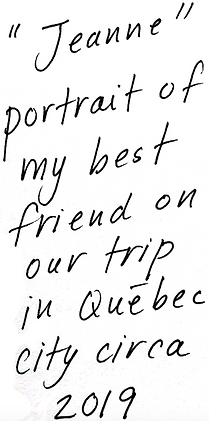 "Jeanne"
portrait of
my best
friend on
our trip
in Québec
city circa
2019